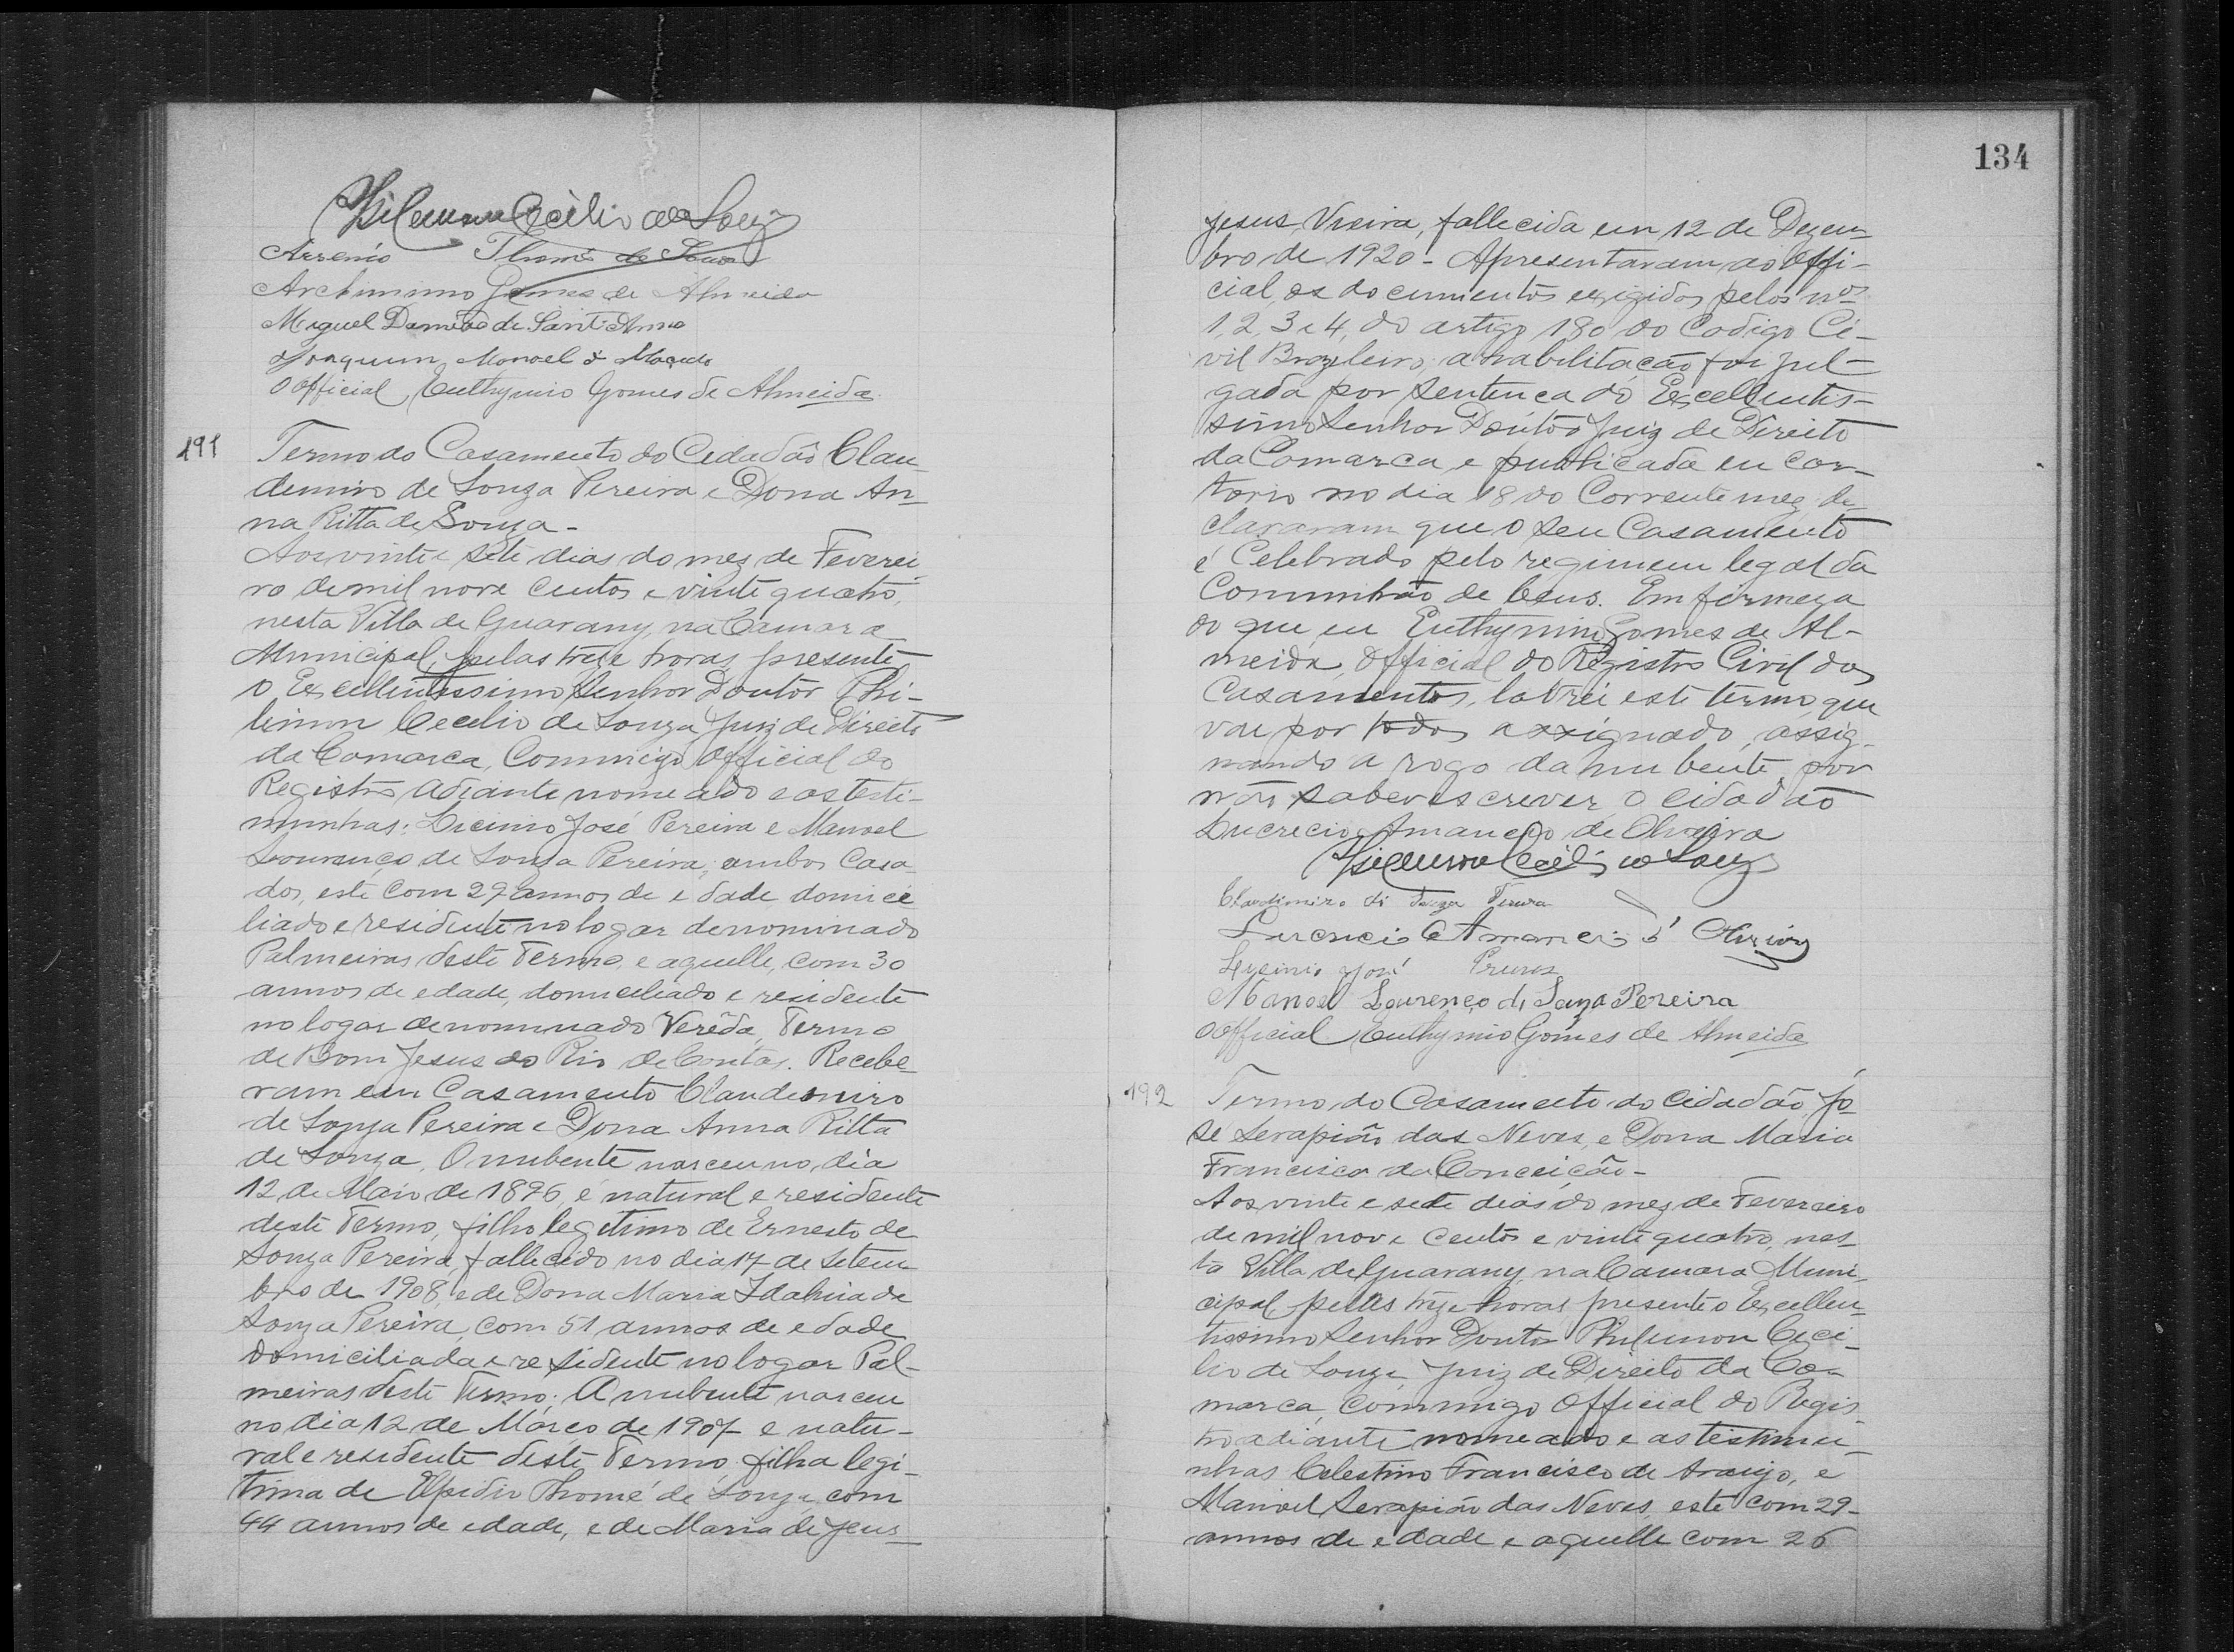 Philemon Cecilio de Souza
Arsenio Thomé de Souza
Archimimo Gomes de Almeida
Miguel Damião de Sant'Anna
Joaquim Manoel de Macedo
O Official Euthymio Gomes de Almeida
191
Termo do Casamento do Cidadão Clau
demiro de Souza Pereira e Dona An
na Ritta de Souza -
Aos vinte e sete dias do mez de Feverei
ro de mil nove centos e vinte quatro,
nesta Villa de Guarany, na Camara
Municipal, pelas treze horas presente
o Excellentissimo Senhor Doutor Phi-
limon Cecilio de Souza Juiz de Direito
da Comarca, Commigo Official do
Registro adiante nomeado e as teste-
munhas: Licinio José Pereira e Manoel
Lourenço de Souza Pereira, ambos Casa
dos, este com 29 annos de edade, domici
liado e residente no logar denominado
Palmeiras deste Termo, e aquelle, com 30
annos de edade, domiciliado e residente
no logar denominado Verêda, Termo
de Bom Jesus do Rio de Contas. Recebe
ram em Casamento Claudemiro
de Souza Pereira e Dona Anna Ritta
de Souza. O nubente nasceu no dia
12 de Maio de 1896, é natural e residente
deste Termo, filho legitimo de Ernesto de
Souza Pereira, fallecido no dia 17 de Setem
bro de 1908, e de Dona Maria de
Souza Pereira, com 51 annos de edade
domiciliada e residente no logar Pal-
meiras deste Termo; A nubente nasceu
no dia 12 de Março de 1907 e natu-
ral e residente deste Termo filha legi-
tima de Elpidio Thomé de Souza, com
44 annos de edade, e de Maria de Jesus
134
Jesus Vieira, fallecida em 12 de Dezem
bro de 1920 - Apresentaram ao Offi-
cial, os documentos exigidos pelos nos
1, 2, 3 e 4, do artigo 180 do Codigo Ci-
vil Brazileiro; a habilitação foi jul-
gada por sentença do Excellentis-
simo Senhor Doutor Juiz de Direito
da Comarca, e publicada em Car-
torio no dia 18 do Corrente mez, de-
clararam que o seu Casamento
é Celebrado pelo regimem legal da
Communhão de bens. Em firmeza
do que eu Euthymio Gomes de Al-
meida, Official do Registro Civil dos
Casamentos, lavrei este termo, que
vae por todos assignado, assig-
nando a rogo da nubente por
não saber escrever, o Cidadão
Lucrecio Amancio de Oliveira
Philemon Cecilio de Souza
Claodimiro di Souza Pereira
Lucrecio Amancio d' Oliveira
Lycinio José Pereira
Manoel Lourenço de Souza Pereira
O Official Euthymio Gomes de Almeida
192
Termo do Casamento do Cidadão Jo
sé Serapião das Neves, e Dona Maria
Francisca da Conceição -
Aos vinte e sete dias do mez de Fevereiro
de mil nove centos e vinte quatro, nes-
ta Villa de Guarany, na Camara Muni-
cipal, pelas treze horas presente o Excellen-
tissimo Senhor Doutor Philemon Ceci-
lio de Souza, Juiz de Direito da Co-
marca, Commigo Official do Regis
tro adiante nomeado e as testemu-
nhas Celestino Francisco de Araujo, e
Manoel Serapião das Neves, este com 29
annos de edade e aquelle com 26